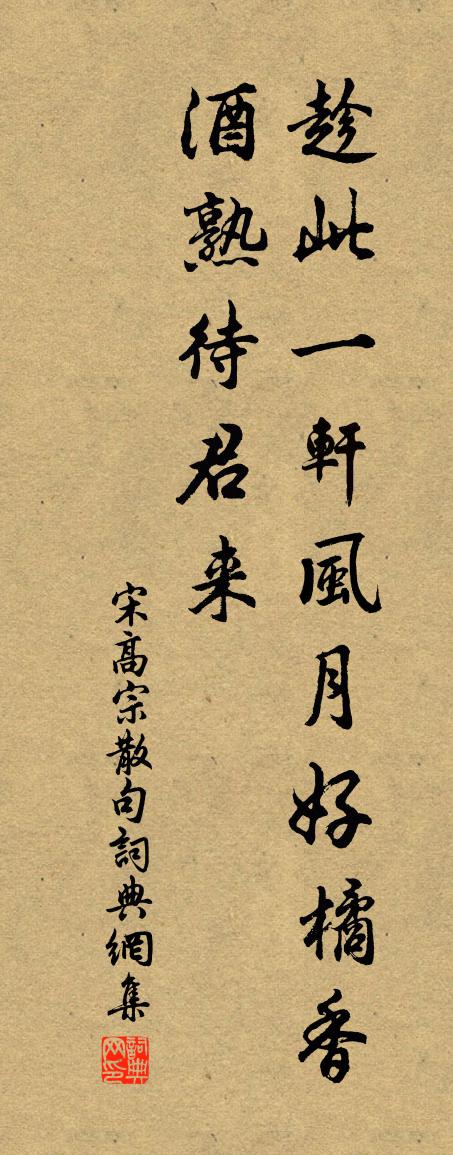 趁此一軒風月好橘香
酒熟待君来
宋高宗散句詞典網集
詞典
网印